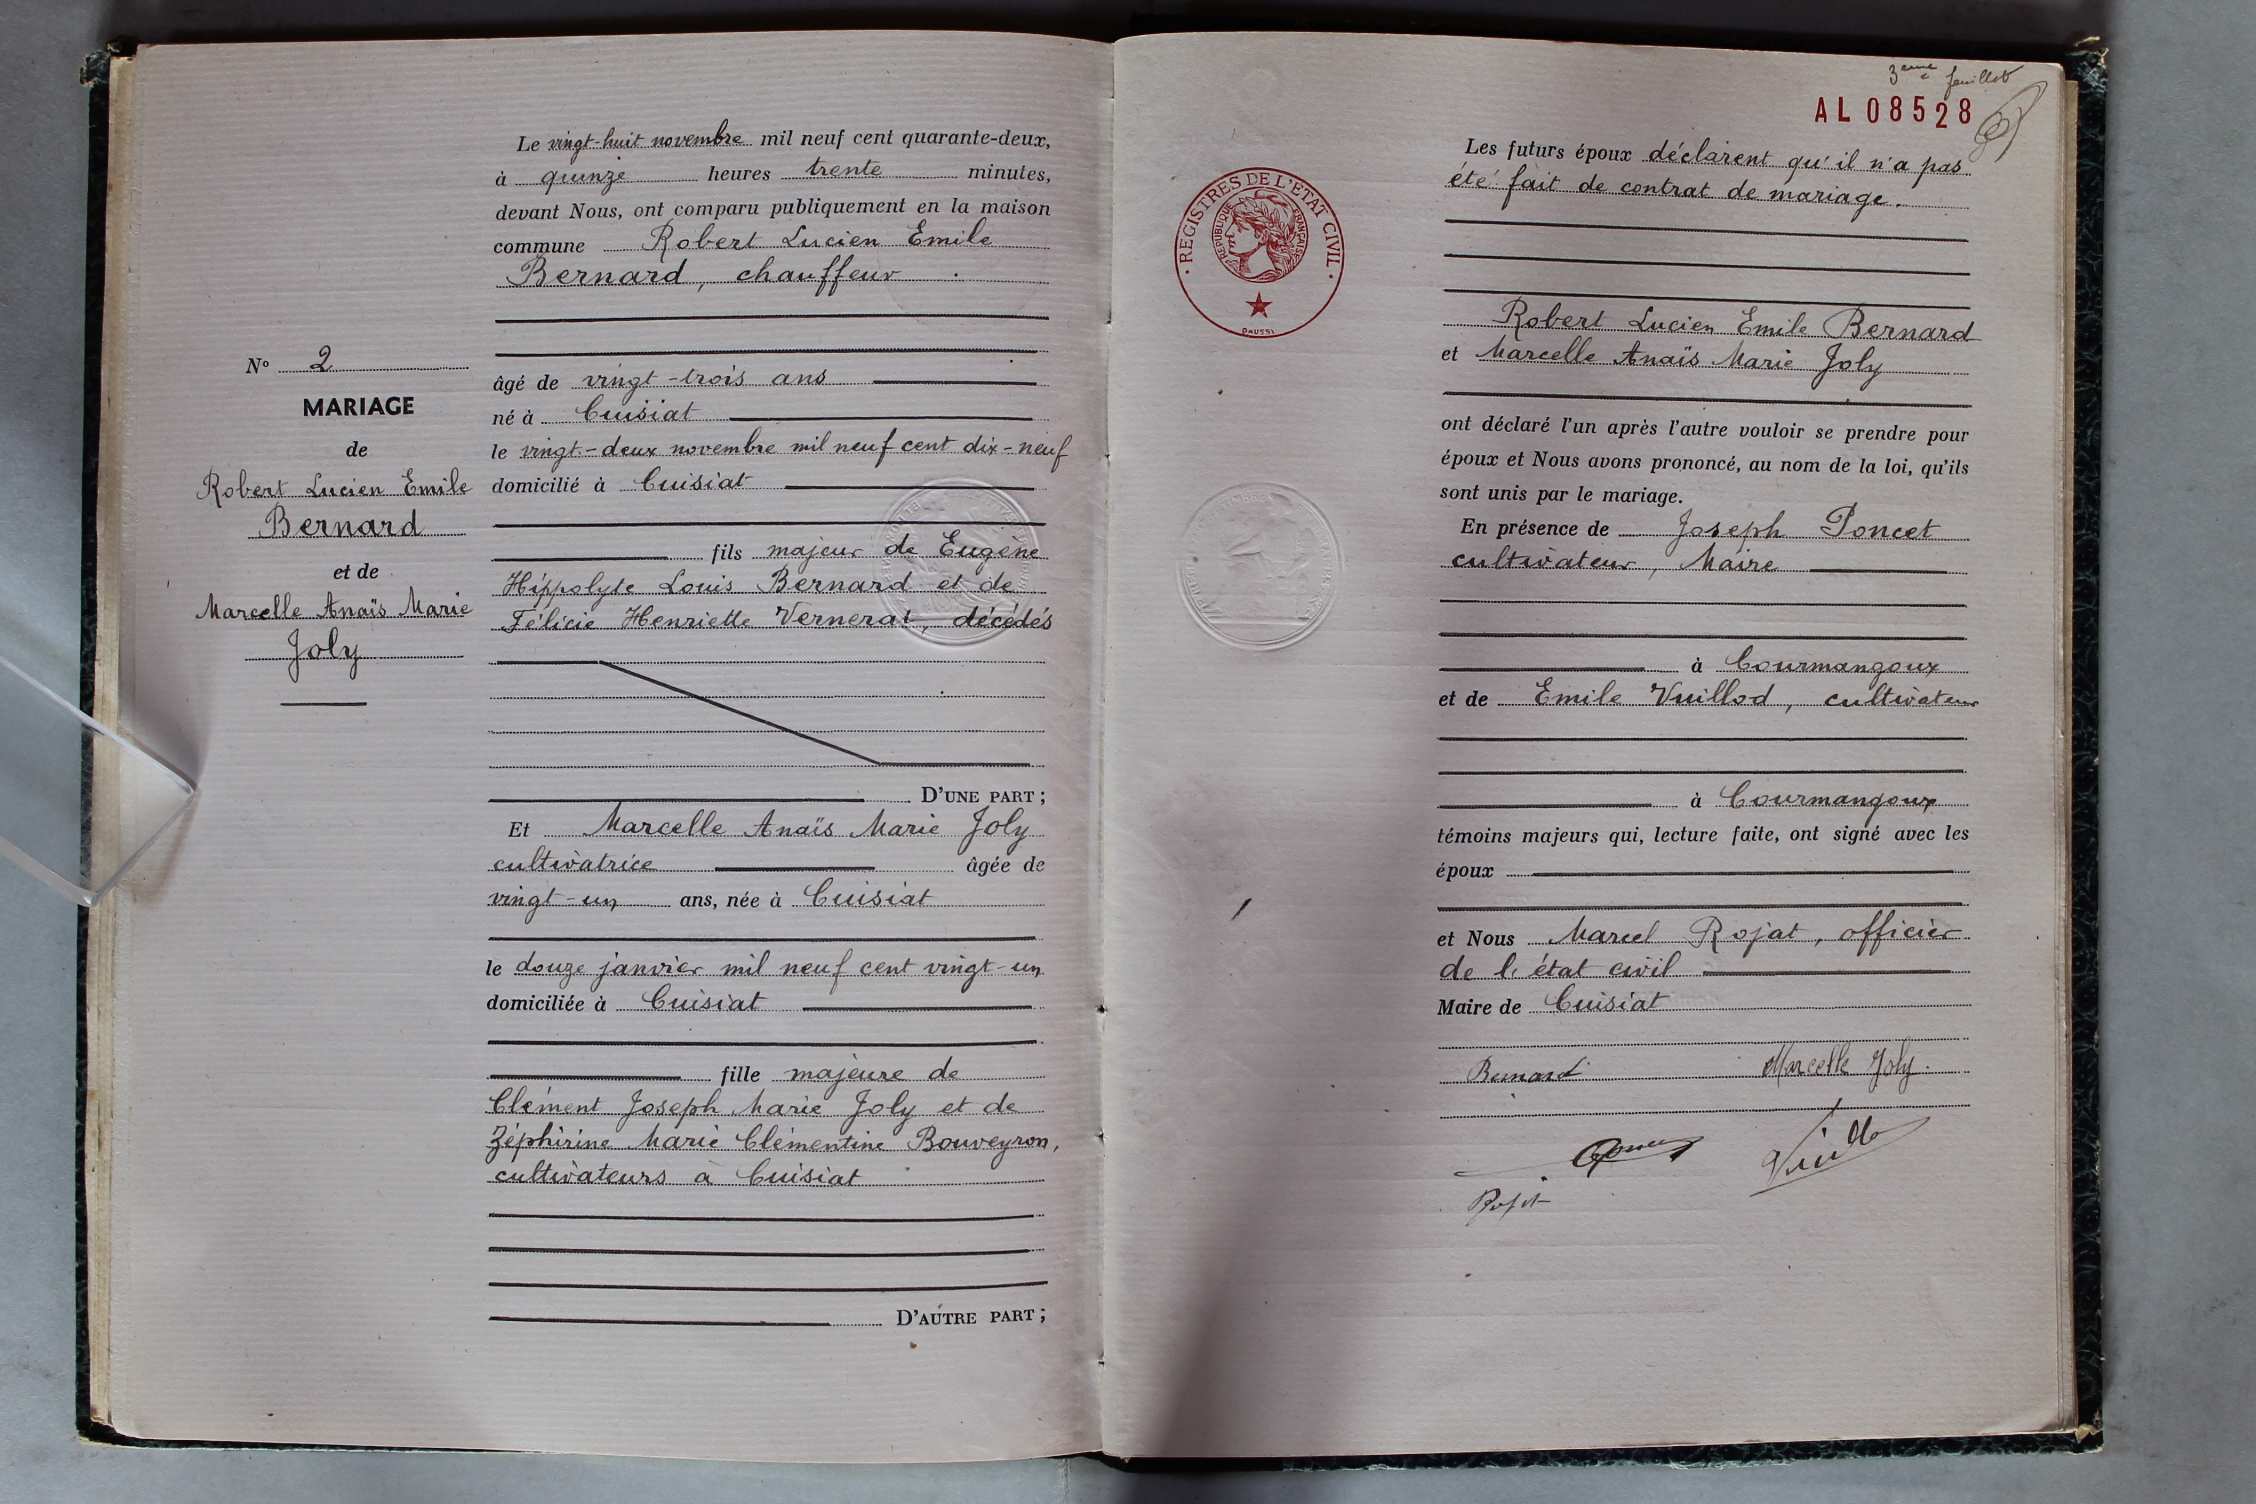 N° 2
MARIAGE
de
Robert Lucien Emile
Bernard
et de
Marcelle Anaïs Marie
Joly
Le vingt-huit novembre mil neuf cent quarante-deux,
à quinze heures trente minutes,
devant Nous, ont comparu publiquement en la maison
commune Robert Lucien Emile
Bernard, chauffeur
âgé de vingt-trois ans
né à Cuisiat
le vingt-deux novembre mil neuf cent dix-neuf
domicilié à Cuisiat
fils majeur de Eugène
Hippolyte Louis Bernard et de
Félicie Henriette Vernerat, décédés
D'UNE PART ;
Et Marcelle Anaïs Marie Joly
cultivatrice âgée de
vingt-un ans, née à Cuisiat
le douze janvier mil neuf cent vingt-un
domiciliée à Cuisiat
fille majeure de
Clément Joseph Marie Joly et de
Zéphirine Marie Clémentine Bouveyron,
cultivateurs à Cuisiat
D'AUTRE PART ;
3eme feuillet
AL 08528
REGISTRES DE L'ETAT CIVIL
REPUBLIQUE FRANÇAISE
DAUSSI
Les futurs époux déclarent qu'il n'a pas
été fait de contrat de mariage.
Robert Lucien Emile Bernard
et Marcelle Anaïs Marie Joly
ont déclaré l'un après l'autre vouloir se prendre pour
époux et Nous avons prononcé, au nom de la loi, qu'ils
sont unis par le mariage.
En présence de Joseph Poncet
cultivateur, Maire
à Courmangoux
et de Emile Vuillod, cultivateur
à Courmangoux
témoins majeurs qui, lecture faite, ont signé avec les
époux
et Nous Marcel Rojat, officier
de l'état civil
Maire de Cuisiat
Bernard Marcelle Joly
Rojat